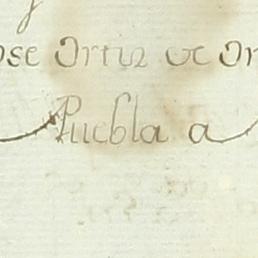 ose Ortiz de Or
Puebla a